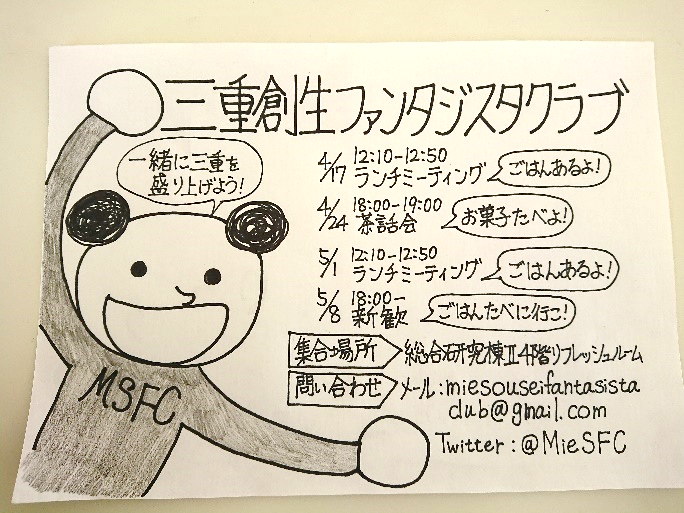 三重創生ファンタジスタクラブ
一緒に三重を
盛り上げよう!
4/17 12:10-12:50
ランチミーティング
ごはんあるよ!
4/24 18:00-19:00
茶話会
お菓子たべよ!
5/1 12:10-12:50
ランチミーティング
ごはんあるよ!
5/8 18:00-
新歓
ごはんたべに行こ!
集合場所 総合研究棟II 4階リフレッシュルーム
問い合わせ メール:miesouseifantasista
club@gmail.com
Twitter:@MieSFC
MSFC